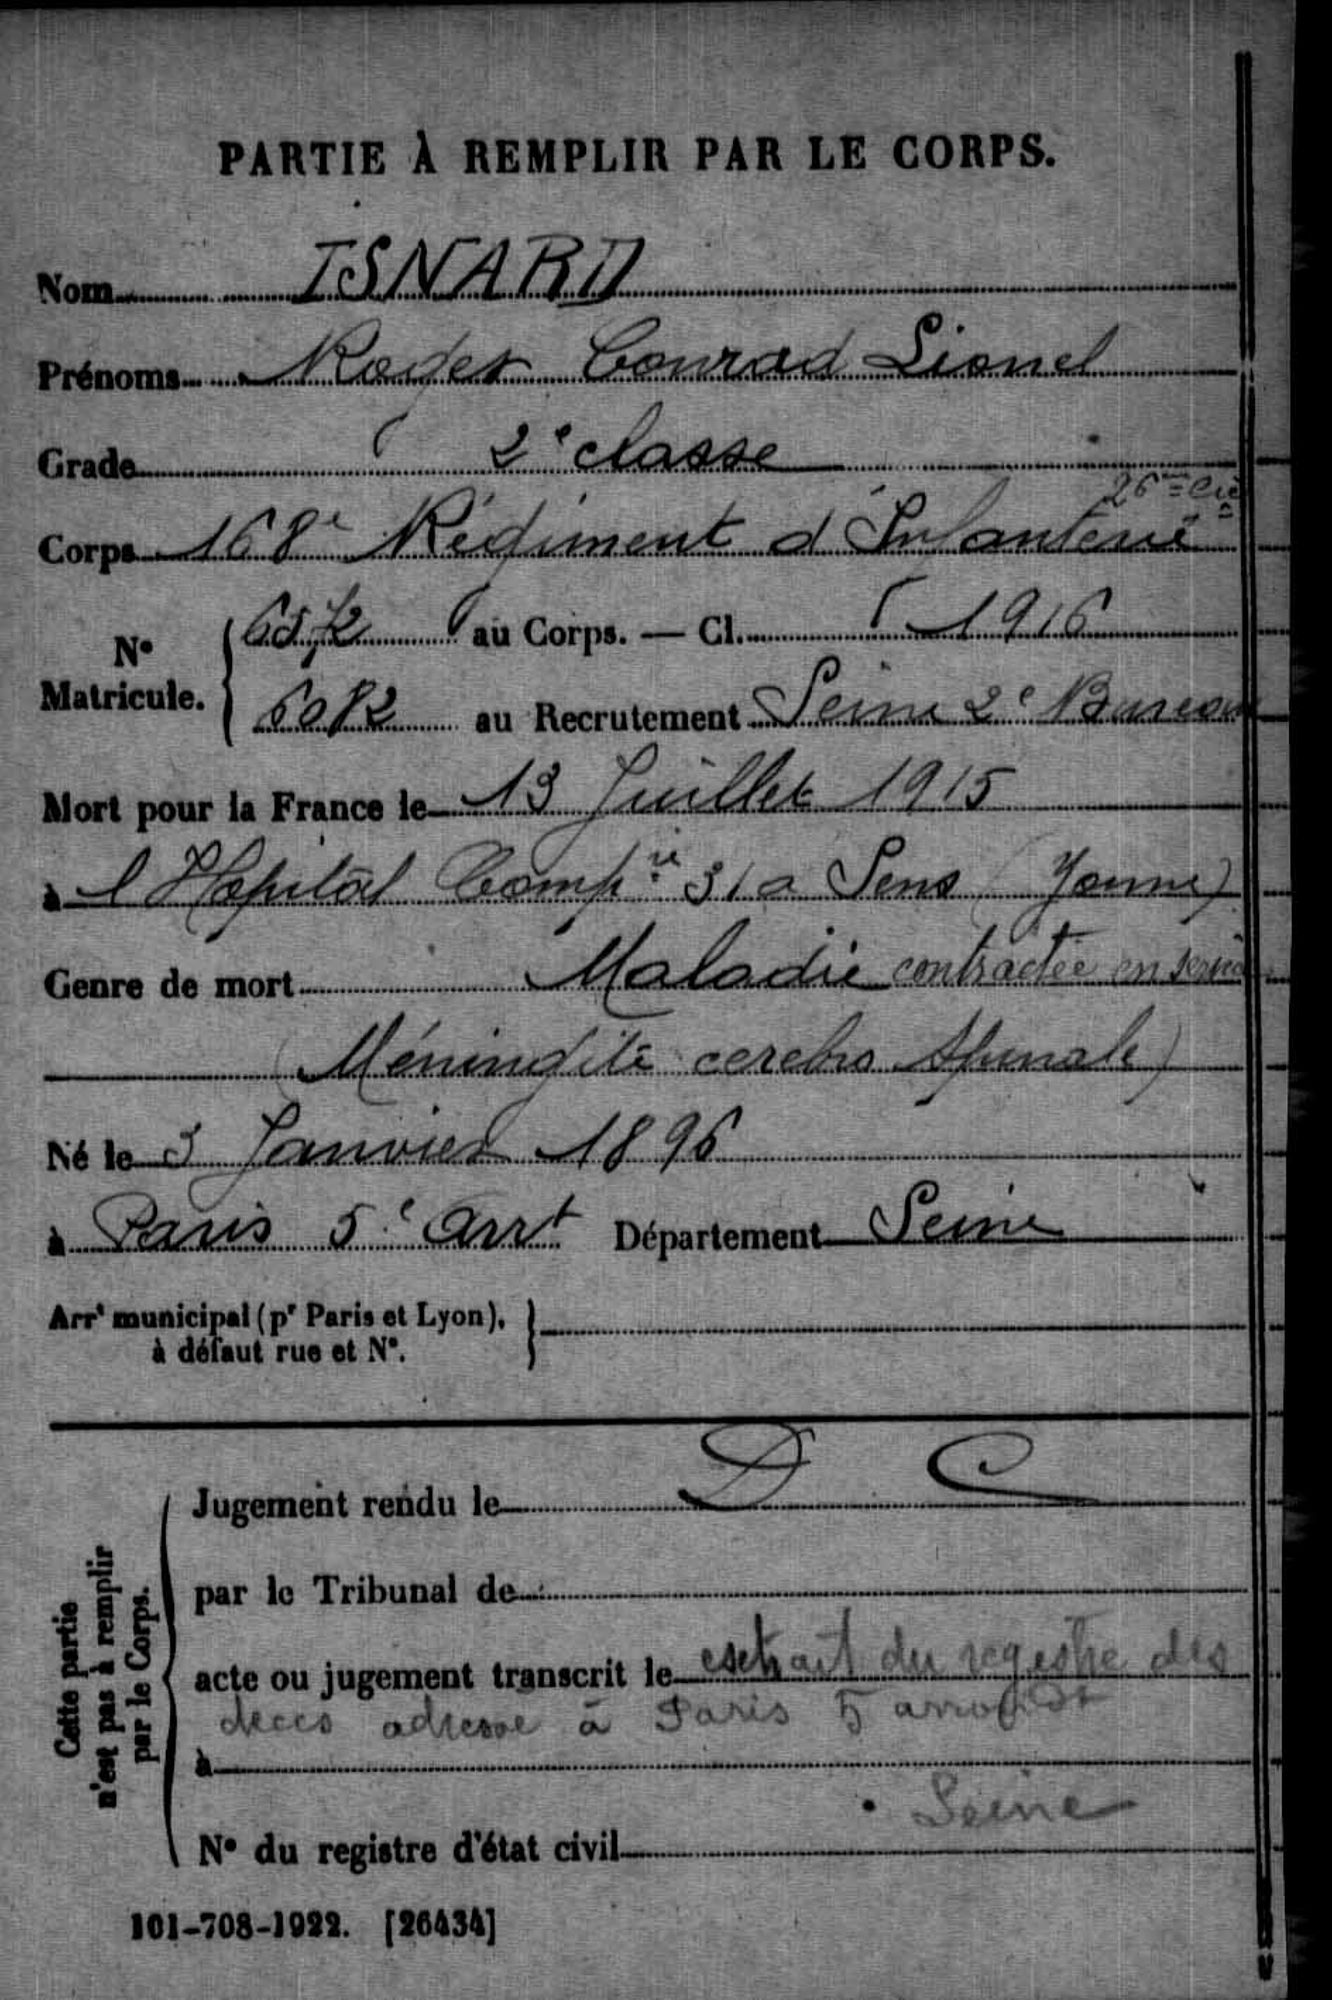 PARTIE À REMPLIR PAR LE CORPS.
Nom ISNARD
Prénoms Roger Conrad Lionel
Grade 2e classe
26me Cie
Corps 168e Régiment d'Infanterie
N° Matricule. { 6572 au Corps. — Cl. 1916
6082 au Recrutement Seine 2e Bureau
Mort pour la France le 13 Juillet 1915
à l'Hôpital Compre 31 a Sens (Yonne)
Genre de mort Maladie contractée en service
(Méningite cerebro spinale)
Né le 3 Janvier 1896
à Paris 5e Arrt Département Seine
Arrt municipal (pr Paris et Lyon), }
à défaut rue et N°.
Cette partie
n'est pas à remplir
par le Corps.
D C
Jugement rendu le
par le Tribunal de
acte ou jugement transcrit le extrait du registre des
deces adressé à Paris 5 arrondt
à
Seine
N° du registre d'état civil
101-708-1922. [26434]